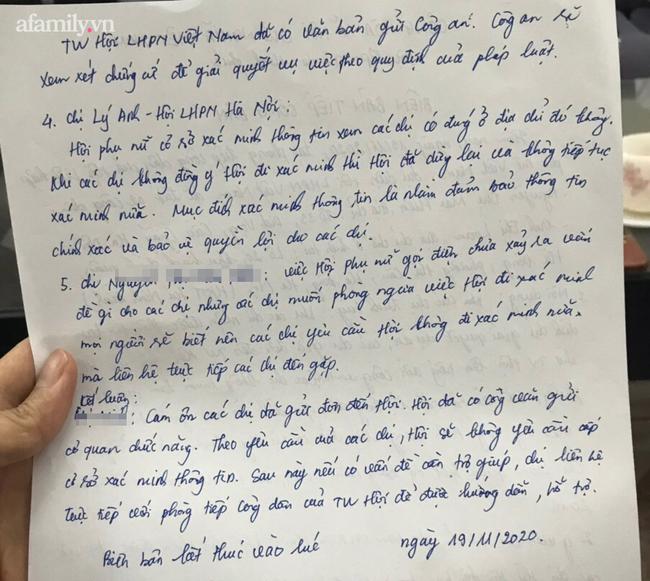 afamily.vn
TW Hội LHPN Việt Nam đã có văn bản gửi Công an. Công an sẽ
xem xét chứng cứ để giải quyết vụ việc theo quy định của pháp luật.
4. chị Lý Anh - Hội LHPN Hà Nội:
Hội phụ nữ cơ sở xác minh thông tin xem các chị có đúng ở địa chỉ đó không.
Khi các chị không đồng ý Hội đi xác minh thì Hội đã dừng lại và không tiếp tục
xác minh nữa. Mục đích xác minh thông tin là nhằm đảm bảo thông tin
chính xác và bảo vệ quyền lợi cho các chị.
5. chị Nguyễn : việc Hội phụ nữ gọi điện chưa xảy ra vấn
đề gì cho các chị nhưng các chị muốn phòng ngừa việc Hội đi xác minh
mọi người sẽ biết nên các chị yêu cầu Hội không đi xác minh nữa,
mà liên hệ trực tiếp các chị đến gặp.
Kết luận:
: Cảm ơn các chị đã gửi đơn đến Hội. Hội đã có công văn gửi
cơ quan chức năng. Theo yêu cầu của các chị, Hội sẽ không yêu cầu cấp
cơ sở xác minh thông tin. Sau này nếu có vấn đề cần trợ giúp, chị liên hệ
trực tiếp với phòng tiếp công dân của TW Hội để được hướng dẫn, hỗ trợ.
Biên bản kết thúc vào lúc ngày 19/11/2020.